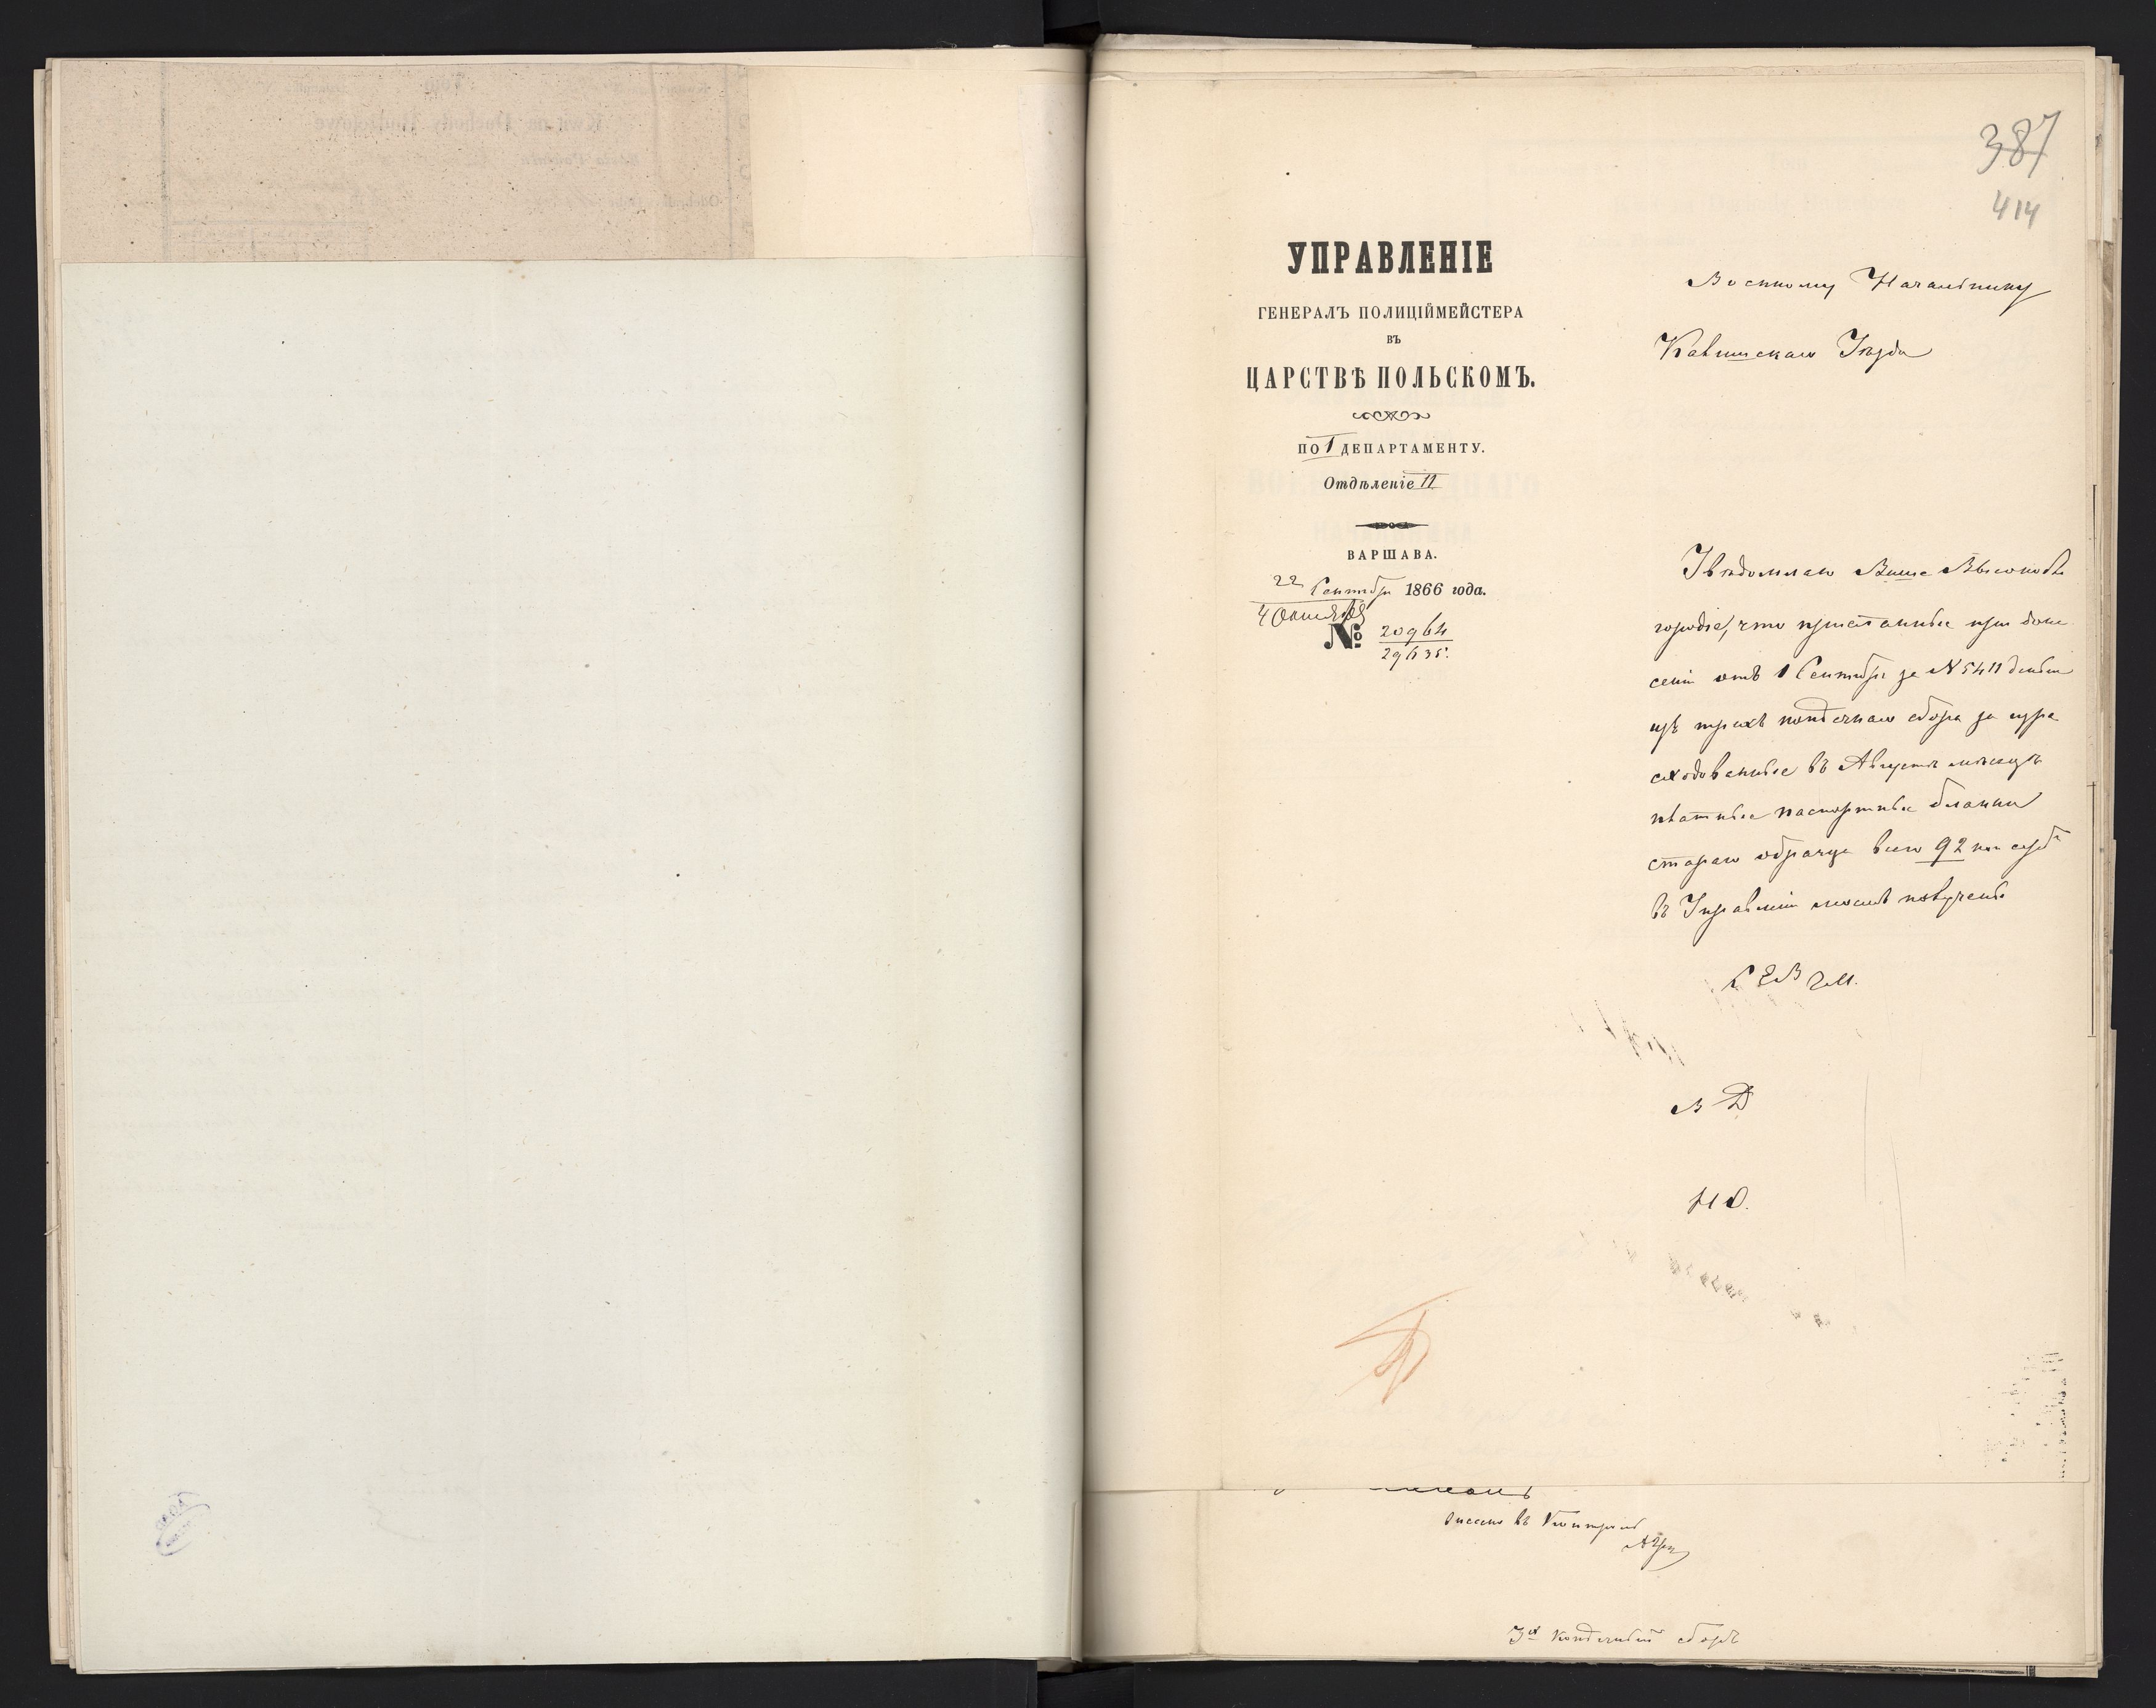 387
414
УПРАВЛЕНІЕ
ГЕНЕРАЛЪ ПОЛИЦІЙМЕЙСТЕРА
ВЪ
ЦАРСТВѢ ПОЛЬСКОМЪ.
ПО I ДЕПАРТАМЕНТУ.
Отдѣленіе II
ВАРШАВА.
22 Сентября 1866 года.
4 Октября
№ 20964
29635.
Военному Начальнику
Уѣзда
Увѣдомляю Ваше Высокобла
городіе, что присланные при доне
сеніи отъ 1 Сентября за N 5411 деньги
изъ трехъ копѣечнаго сбора за изра
сходованные въ Августѣ мѣсяцѣ
платные паспортные бланки
стараго образца всего 92 коп сер
въ Управленіи получены
В Д
Н О.
въ
3х копѣечный сборъ